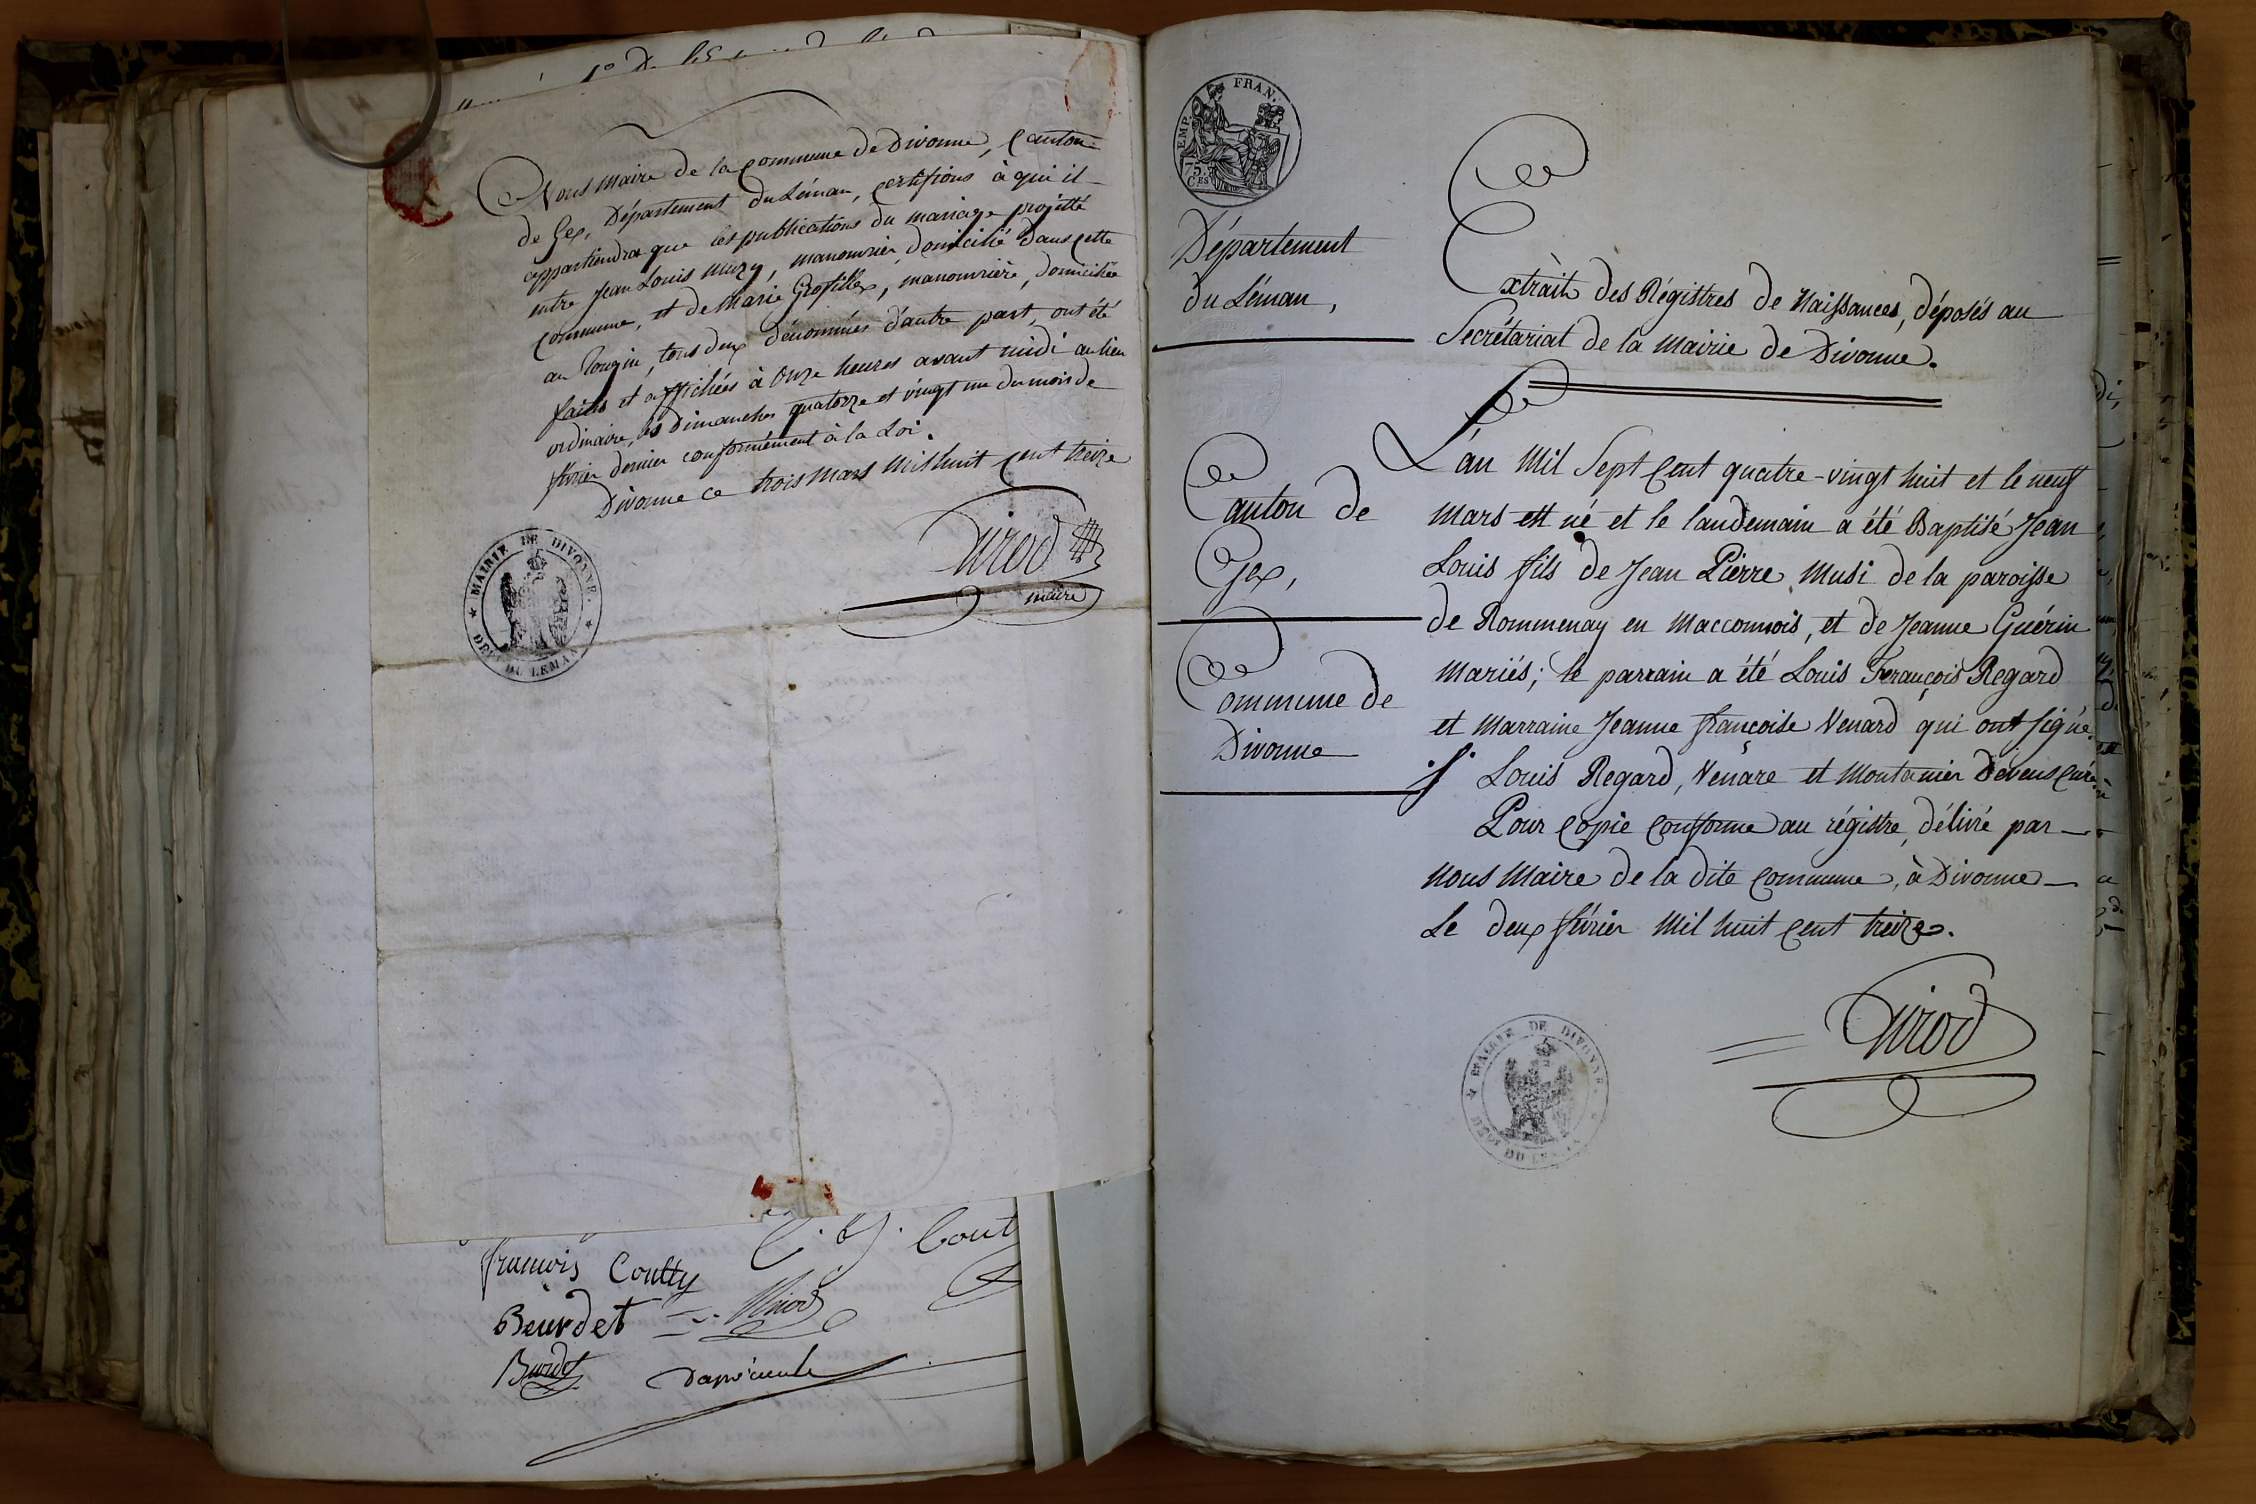 Nous Maire de la Commune de Divonne, Canton
de Gex, Département du Léman, certifions à qui il
appartiendra que les publications du mariage projetté
entre Jean Louis Muzy, manouvrier, domicilié dans cette
Commune, et de Marie Grosfillex, manouvrière, domiciliée
au tous deux dénommés d'autre part, ont été
faites et affichées à onze heures avant midi au lieu
ordinaire, les Dimanches quatorze et vingt un du mois de
février dernier conformément à la Loi.
Divonne ce trois Mars Mil huit cent treize
Girod
maire
MAIRIE DE DIVONNE.
DEPT DU LEMAN
françois Coutty
Beurdet
Burdet
EMP. FRAN.
75.
CES
Département
du Léman,
Canton de
Gex,
Commune de
Divonne
Extrait des Régistres de Naissances, déposés au
Secrétariat de la Mairie de Divonne.
L'an Mil Sept Cent quatre-vingt huit et le neuf
Mars est né et le landemain a été Baptisé Jean
Louis fils de Jean Pierre Musi de la paroisse
de Rommenay en Macconnois, et de Jeanne Guérin
Mariés; le parrain a été Louis François Regard
et Marraine Jeanne françoise Venard qui ont signé
Louis Regard, Venare et Montanier Devens Curé
Pour Copie Conforme au régistre, délivré par
Nous Maire de la dite Commune, à Divonne
Le deux février Mil huit cent treize.
Girod
MAIRIE DE DIVONNE.
DEPT DU LEMAN